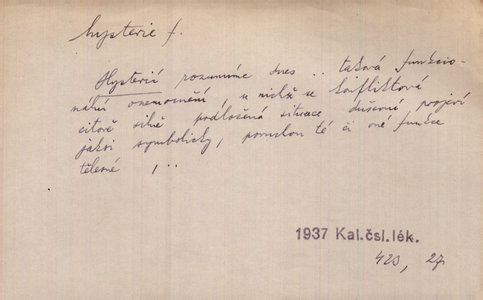 hysterie f.
Hysterií rozumíme dnes .. taková funkcio-
nální onemocnění u nichž se konfliktová
citově silně podložená situace duševní projeví
jakoi symbolicky, poruchou té či oné funkce
tělesné, ..
1937 Kal.čsl.lék.
423, 27